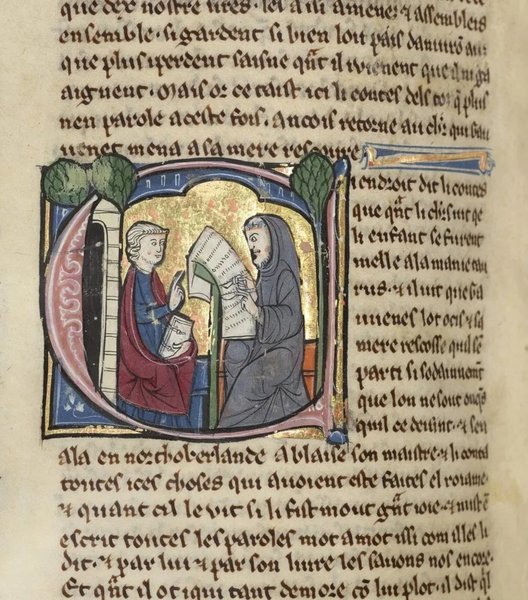 que dex nostre sires. les a si amenez & assemblees
ensemble. si gardent si bien lou pais danuirō aus
que plus iperdent saisne q̄nt il iuienent que il ni ga
aignent. Mais or ce taist ici li contes dels q̄ plus
nen parole aceste fois. ancois retorne au cl'r qui bau
uenez mena a sa mere rescoure
iendroit dit li contes
que q̄nt li cl'r uit qe
li enfant se furent
melle a la manie tau
rus. & il uit que ba
uuenes lot ocis & sa
mere rescosse quil se
parti si sodainnemt
que lon ne sont onqs
quil ce deuint. & sen
ala en norhoberlande a blaise son maistre & li conta
toutes ices choses qui auoient este faites el roiame.
& quant cil le vit si li fist mout g̃nt ioie. & mist ē
escrit toutes les paroles mot a mot issi com il les li
dit. & par lui & par son liure les sauons nos encore.
Et q̄nt il ot iqui tant demore cō lui plot. il dist ql